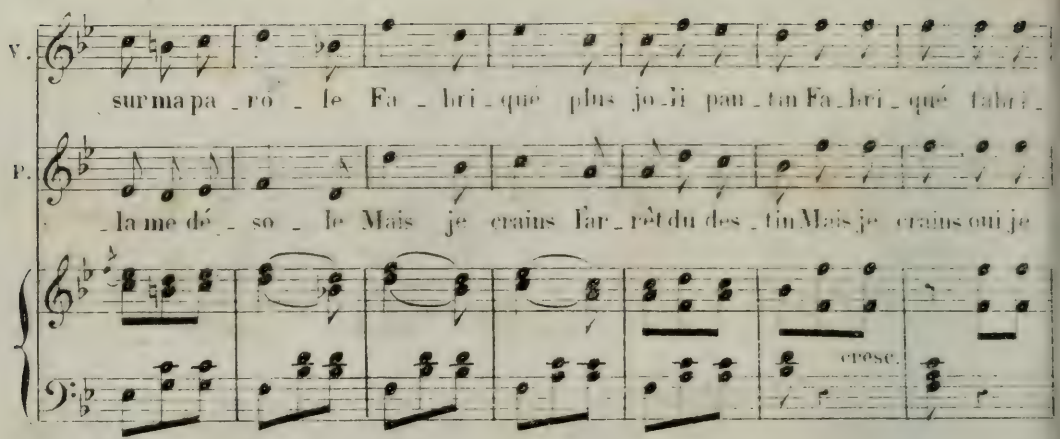 V.
sur ma pa _ ro _ le Fa _ bri _ qué plus jo _ li pan _ tin Fa _ bri _ qué fabri _
P.
_ la me dé _ so _ le Mais je crains l'ar _ rêt du des _ tin Mais je crains oui je
cresc.